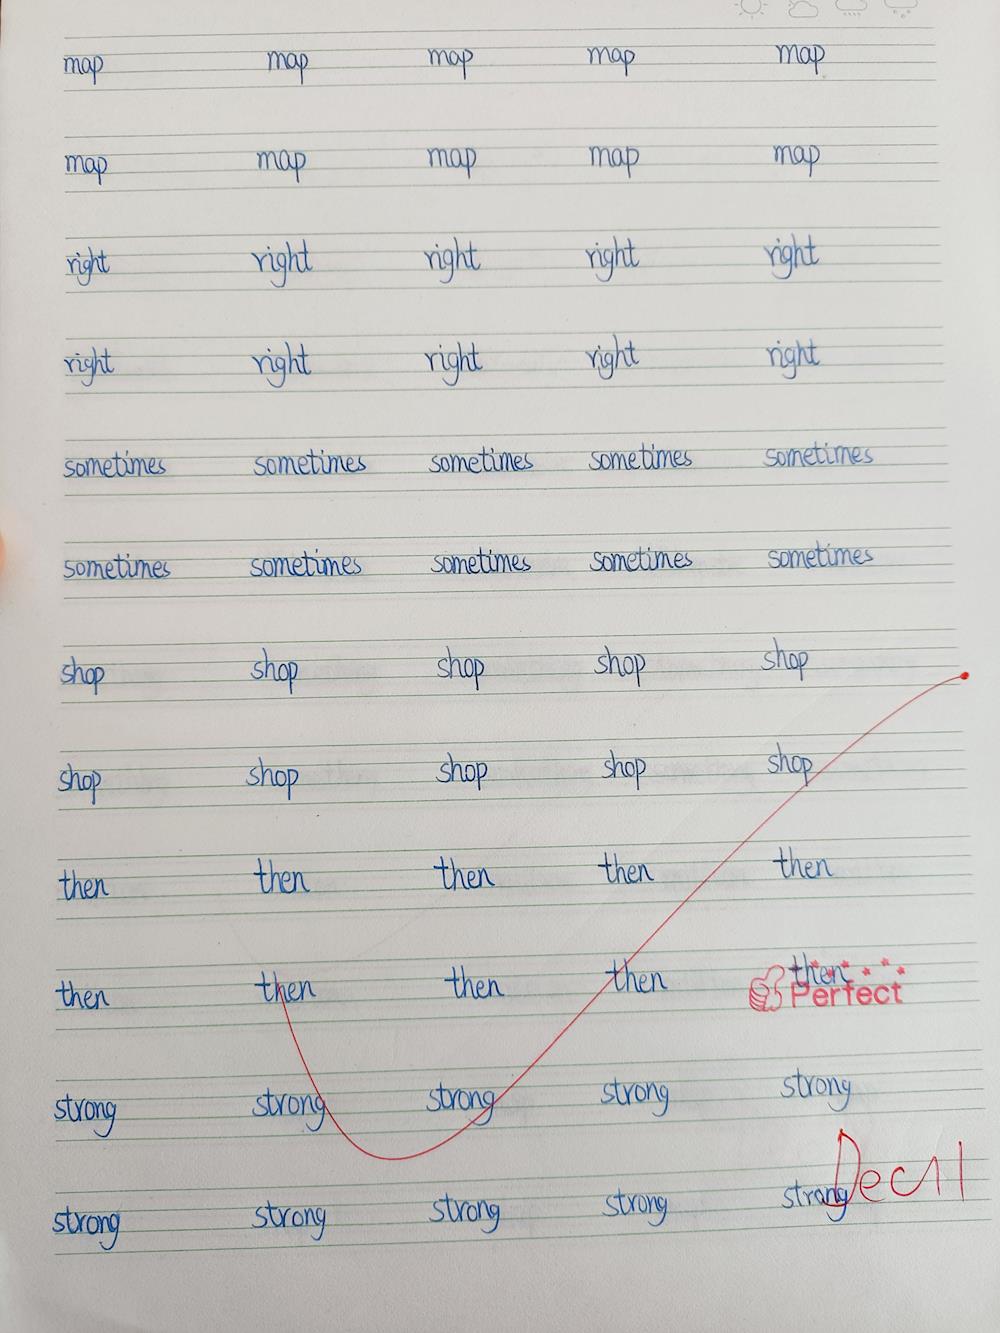 map map map map map
map map map map map
right right right right right
right right right right right
sometimes sometimes sometimes sometimes sometimes
sometimes sometimes sometimes sometimes sometimes
shop shop shop shop shop
shop shop shop shop shop
then then then then then
then then then then then
Perfect
strong strong strong strong strong
strong strong strong strong strong